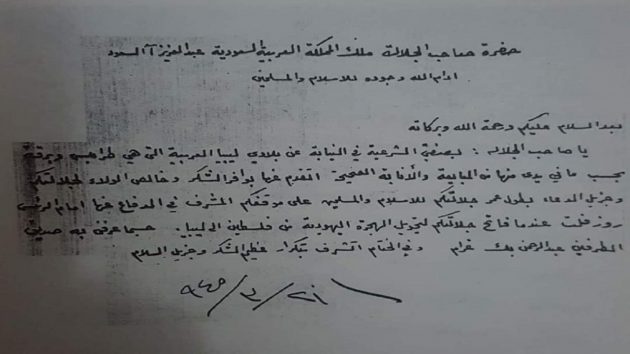 حضرة صاحب الجلالة ملك المملكة العربية السعودية عبد العزيز آل السعود
ادام الله وجوده للاسلام والمسلمين
بعد السلام عليكم ورحمة الله وبركاته
يا صاحب الجلالة : بصفتي الشرعية في النيابة عن بلادي ليبيا العربية التي هي طرابلس وبرقة
بحسب ما في يدي منها من المبايعة والأنابة الصحيحة اتقدم عنها بوافر الشكر وخالص الولاء لجلالتكم
وجزيل الدعاء بطول عمر جلالتكم للاسلام والمسلمين على موقفكم المشرف في الدفاع عنها امام الرئيس
روزفلت عندما فاتح جلالتكم لتحويل الهجرة اليهودية من فلسطين الى ليبيا. حسبما عرفني به صديق
الطرفين عبد الرحمن بك عزام وفي الختام اتشرف بتكرار عظيم الشكر وجزيل السلام